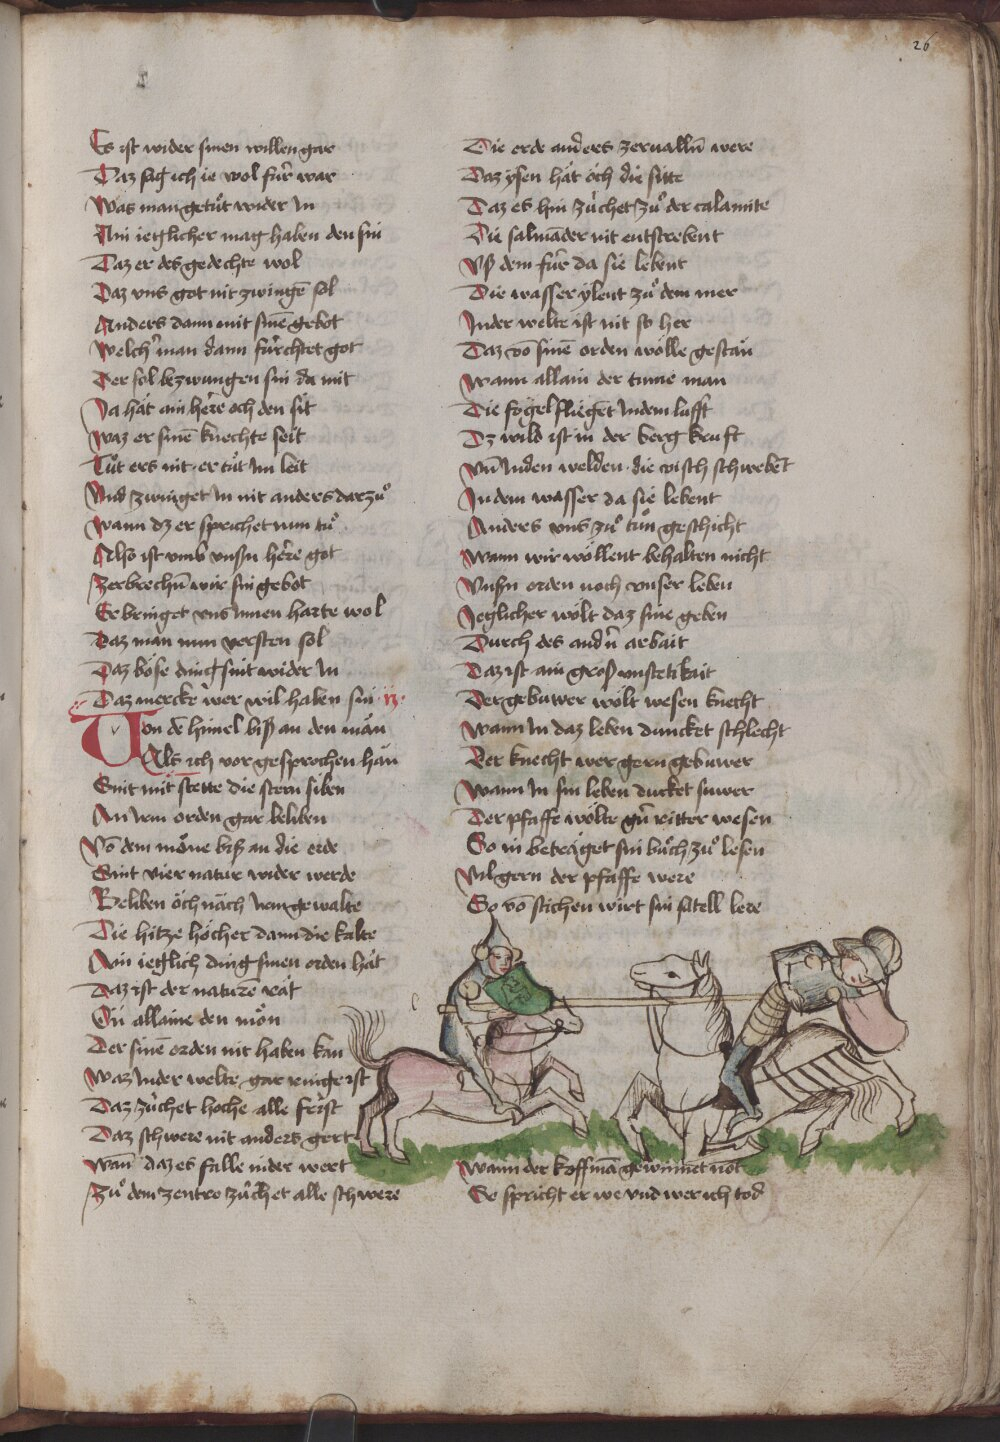 26
Es ist wider sinen willen gar
Daz sag ich ie wol fúr war
Was man getuͦt wider In
Ain ieglicher mag haben den sin
Daz er des gedechte wol
Daz vns got nit zwingē sol
Anders dann mit sinē gebot
Welch' man dann fúrchtet got
Der sol bezwungen sin da mit
Ja hát ain here och den sit
Waz er sinē knechte seit
Tuͦt ers nit er tuͦt Im leit
Vnd zwinget In nit anders darzuͦ
Wann dz er sprichet nun tuͦ
Also ist vmb vnsn here got
Zerbrechn̄ wir sin gebot
Er bringet vns Innen harte wol
Daz man nun versten sol
Daz böse ding sint wider In
Daz mercke wer wil haben sin
Von dē himel biß an den mān
Als ich vor gesprochen han
Sint mit stette die stern siben
An Irem orden gar beliben
Vō dem mone biß an die erde
Sint vier natur wider werde
Beliben öch nāch Irem gewalte
Die hitze höcher dann die kalte
Ain ieglich ding sinen orden hát
Daz ist der naturē rát
On allaine den mōn
Der sinē orden nit haben kan
Waz Inder welte gar ringe ist
Daz zúchet hoche alle frist
Daz schwere nit anders gert
Wan̄ daz es falle nider wert
Zuͦ dem zentro zúchet alle schwere
Die erde anders zerualln̄ were
Daz ysen hát öch die sitte
Daz es hin zúchet zuͦ der calamite
Die salmāder nit entstrebent
Vß dem fúr da sie lebent
Die wasser ylent zuͦ dem mer
Inder welte ist nit so her
Daz vō sinē orden wölle gestān
Wann allain der tume man
Die fogel fliegēt Indem lufft
Dz wild ist in der berg kruft
Vn̄ Inden welden die visch schwebēt
In dem wasser da sie lebent
Anders vns zuͦ tuͦn geschicht
Wann wir wöllent behalten nicht
Vnsn orden noch vnser leben
Ieglicher wölt daz sine geben
Durch des andn̄ arbait
Daz ist ain groß vnstetikait
Der gebuwer wölt wesen knecht
Wann In daz leben duncket schlecht
Der knecht wer gern gebuwer
Wann In sin leben ducket suwer
Der pfaffe wölte gn̄ ritter wesen
So in betráget sin buͦch zuͦ lesen
Vil gern der pfaffe were
So vō stichen wirt sin sátell lere
Wann der koffmā gewinnet not
So spricht er we vnd wer ich tod